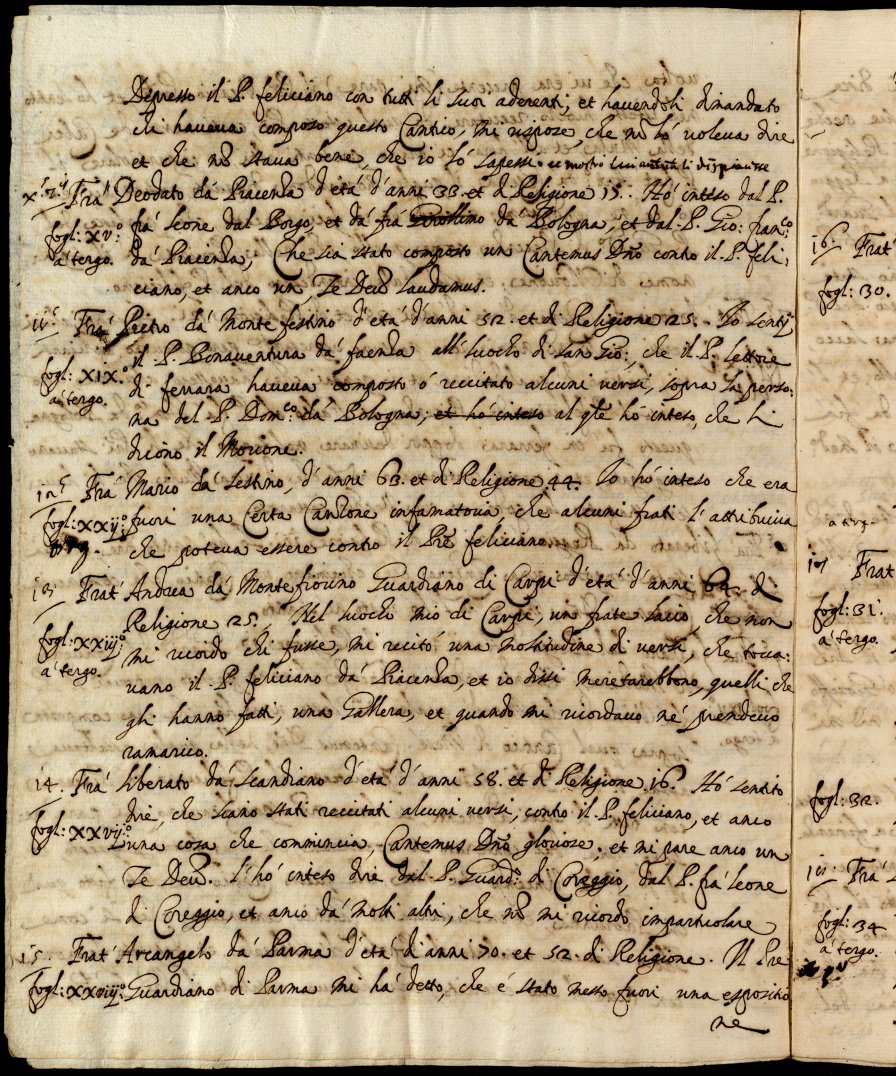 Depresso il P. feliciano con tutti li suoi aderenti; et havendoli dimandato
chi haveva composto questo Cantico; mi rispose, che nõ lo voleva dire
et che nõ stava bene, che io lo sapessi. et mostrò
Fra Deodato da Piacenza d'età d'anni 33. et di Religione 15. Hò inteso dal P.
fogl: XV:º frà leone dal Borgo, et dà frà da Bologna, et dal P. Gio: franco:
à tergo. dà Piacenza; Che sia stato composto un Cantemus Dño contro il P. feli,
ciano, et anco un, Te Deũ laudamus.
Frà Pietro dà Monte festino d'età d'anni 52. et di Religione 25. Io sentij
il P. Bonaventura dà faenza all' luocho di san Gio:, che il P. lettore
fogl: XIX:º di ferrara haveva composto ò reccitato alcuni versi, sopra la perso:
à tergo. na del P. Domco: dà Bologna; et hò inteso al qle hò inteso, che li
dicono il Morione.
Frà Mario dà Sestino, d'anni 63. et di Religione 44. Io hò inteso che era
fogl: XXij:º fuori una Certa Canzone infamatoria che alcuni frati l'attribuiva
che poteva essere contro il Prẽ feliciano.
13 Frat' Andrea dà Montefiorino Guardiano di Carpi d'età d'anni 62. di
Religione 25. Nel luocho mio di Carpi, un frate laico, che non
fogl: XXiij:º mi ricordo chi fusse, mi recitò una moltitudine di versi, che tocca:
à tergo. vano il P. feliciano dà Piacenza, et io dissi meritarebbono, quelli che
gli hanno fatti, una Gallera, et quando mi ricordavo nè prendevo
ramarico.
14. Frà liberato dà scandiano d'età d'anni 58. et di Religione 16. Hò sentito
dire, che siano stati reccitati alcuni versi, contro il P. feliciano, et anco
fogl: XXVij:º una cosa che comincia, Cantemus Dño gloriose; et mi pare anco un
Te Deũ. l'hò inteso dire dal P. Guardº di Coreggio, dal P. frà leone
di Coreggio, et anco dà molti altri, che nõ mi ricordo imparticolare
15. Frat' Arcangelo dà Parma d'età di anni 70. et 52. di Religione. Il Pre
fogl: XXViij:º Guardiano di Parma mi hà detto, che è stato messo fuori una espositio
ne
16. Frat'
fogl: 30.
à tergo.
Frat
fogl: 31.
à tergo.
fogl: 32.
Frà
fogl: 34
à tergo.